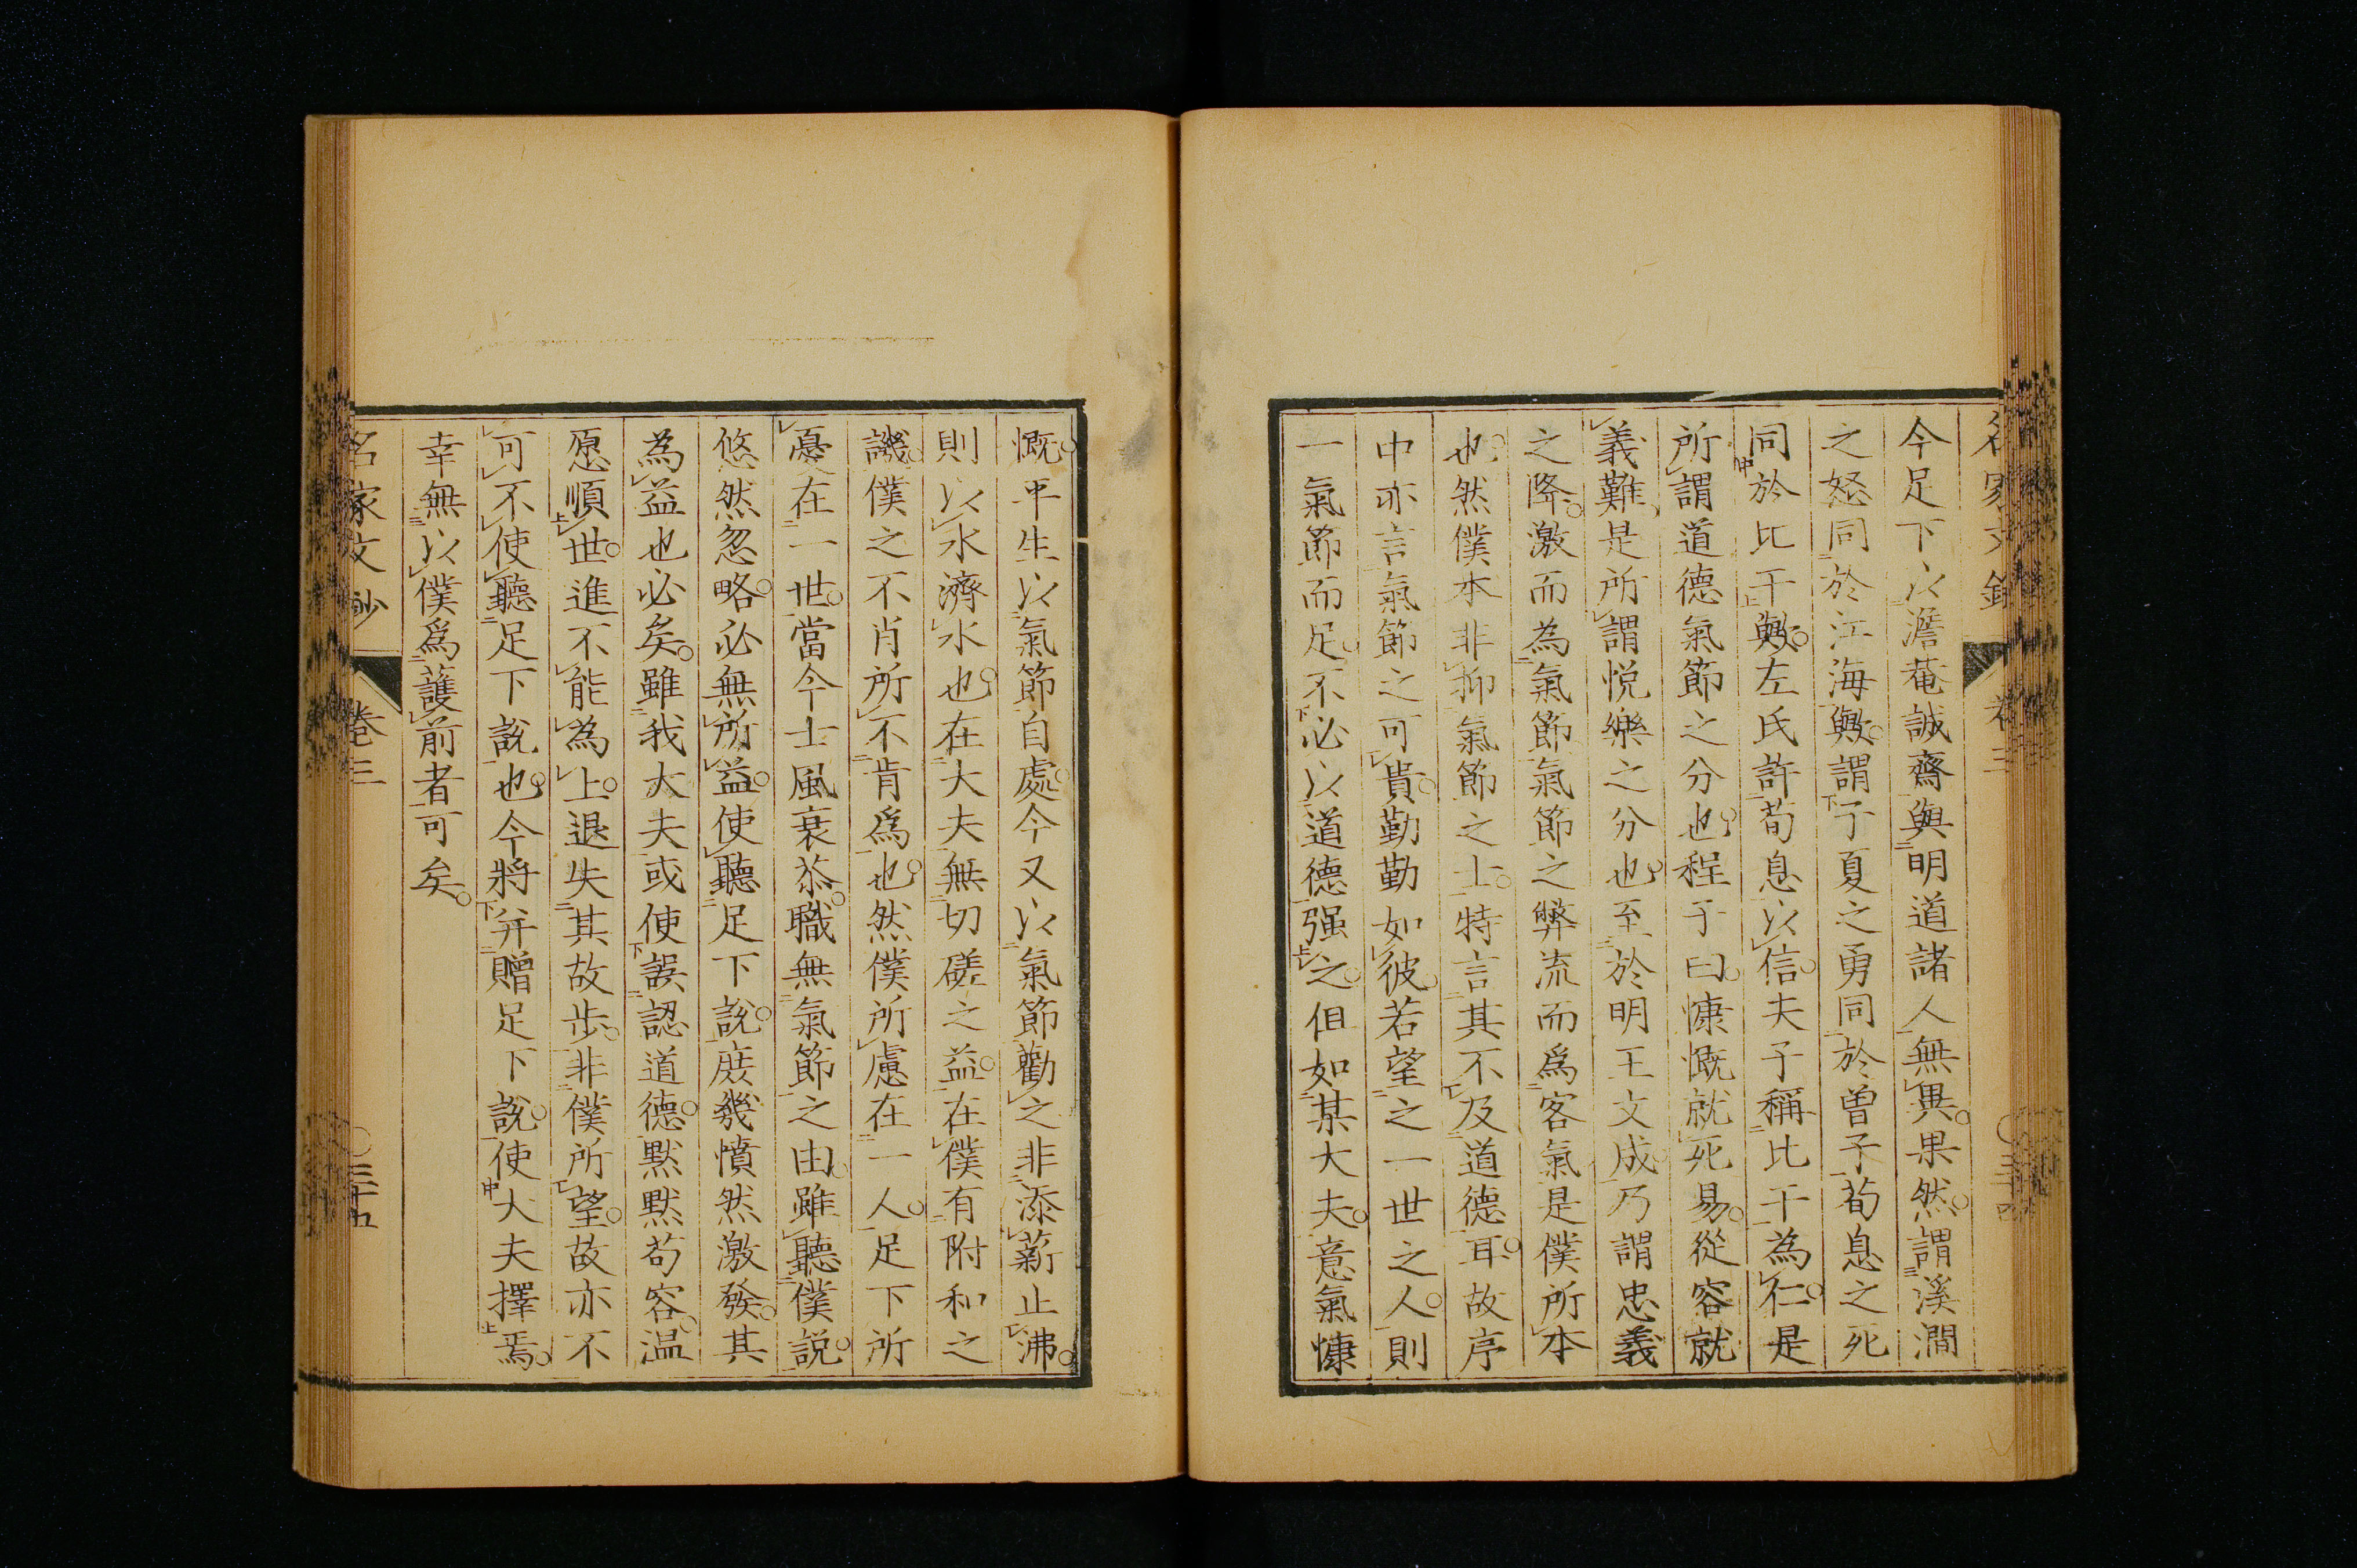 今足下以澹菴誠齋與明道諸人無異果然謂溪澗
之怒同於江海歟謂子夏之勇同於曾子荀息之死
同於比干歟左氏許荀息以信夫子稱比干為仁是
所謂道德氣節之分也程子曰慷慨就死易從容就
義難是所謂悦樂之分也至於明王文成乃謂忠義
之降激而為氣節氣節之弊流而爲客氣是僕所本
也然僕本非抑氣節之士特言其不及道德耳故序
中亦言氣節之可貴勤勤如彼若望之一世之人則
一氣節而足不必以道德强之但如某大夫意氣慷
慨平生以氣節自處今又以氣節勸之非添薪止沸
則以水濟水也在大夫無切磋之益在僕有附和之
譏僕之不肖所不肯爲也然僕所慮在一人足下所
憂在一世當今士風衰苶職無氣節之由雖聽僕説
悠然忽略必無所益使聽足下說庶幾憤然激發其
為益也必矣雖我大夫或使誤認道德默默苟容温
愿順世進不能為上退失其故步非僕所望故亦不
可不使聽足下說也今將并贈足下說使大夫擇焉
幸無以僕爲護前者可矣
名家文鈔
卷三
三十五